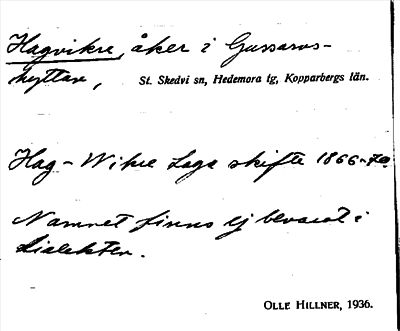 Hagvikre, åker i Gussarvs-
hyttan, St. Skedvi sn, Hedemora tg, Kopparbergs län.
Hag-Wikre Laga skifte 1866-70
Namnet finns ej bevarat i
dialekten.
OLLE HILLNER, 1936.